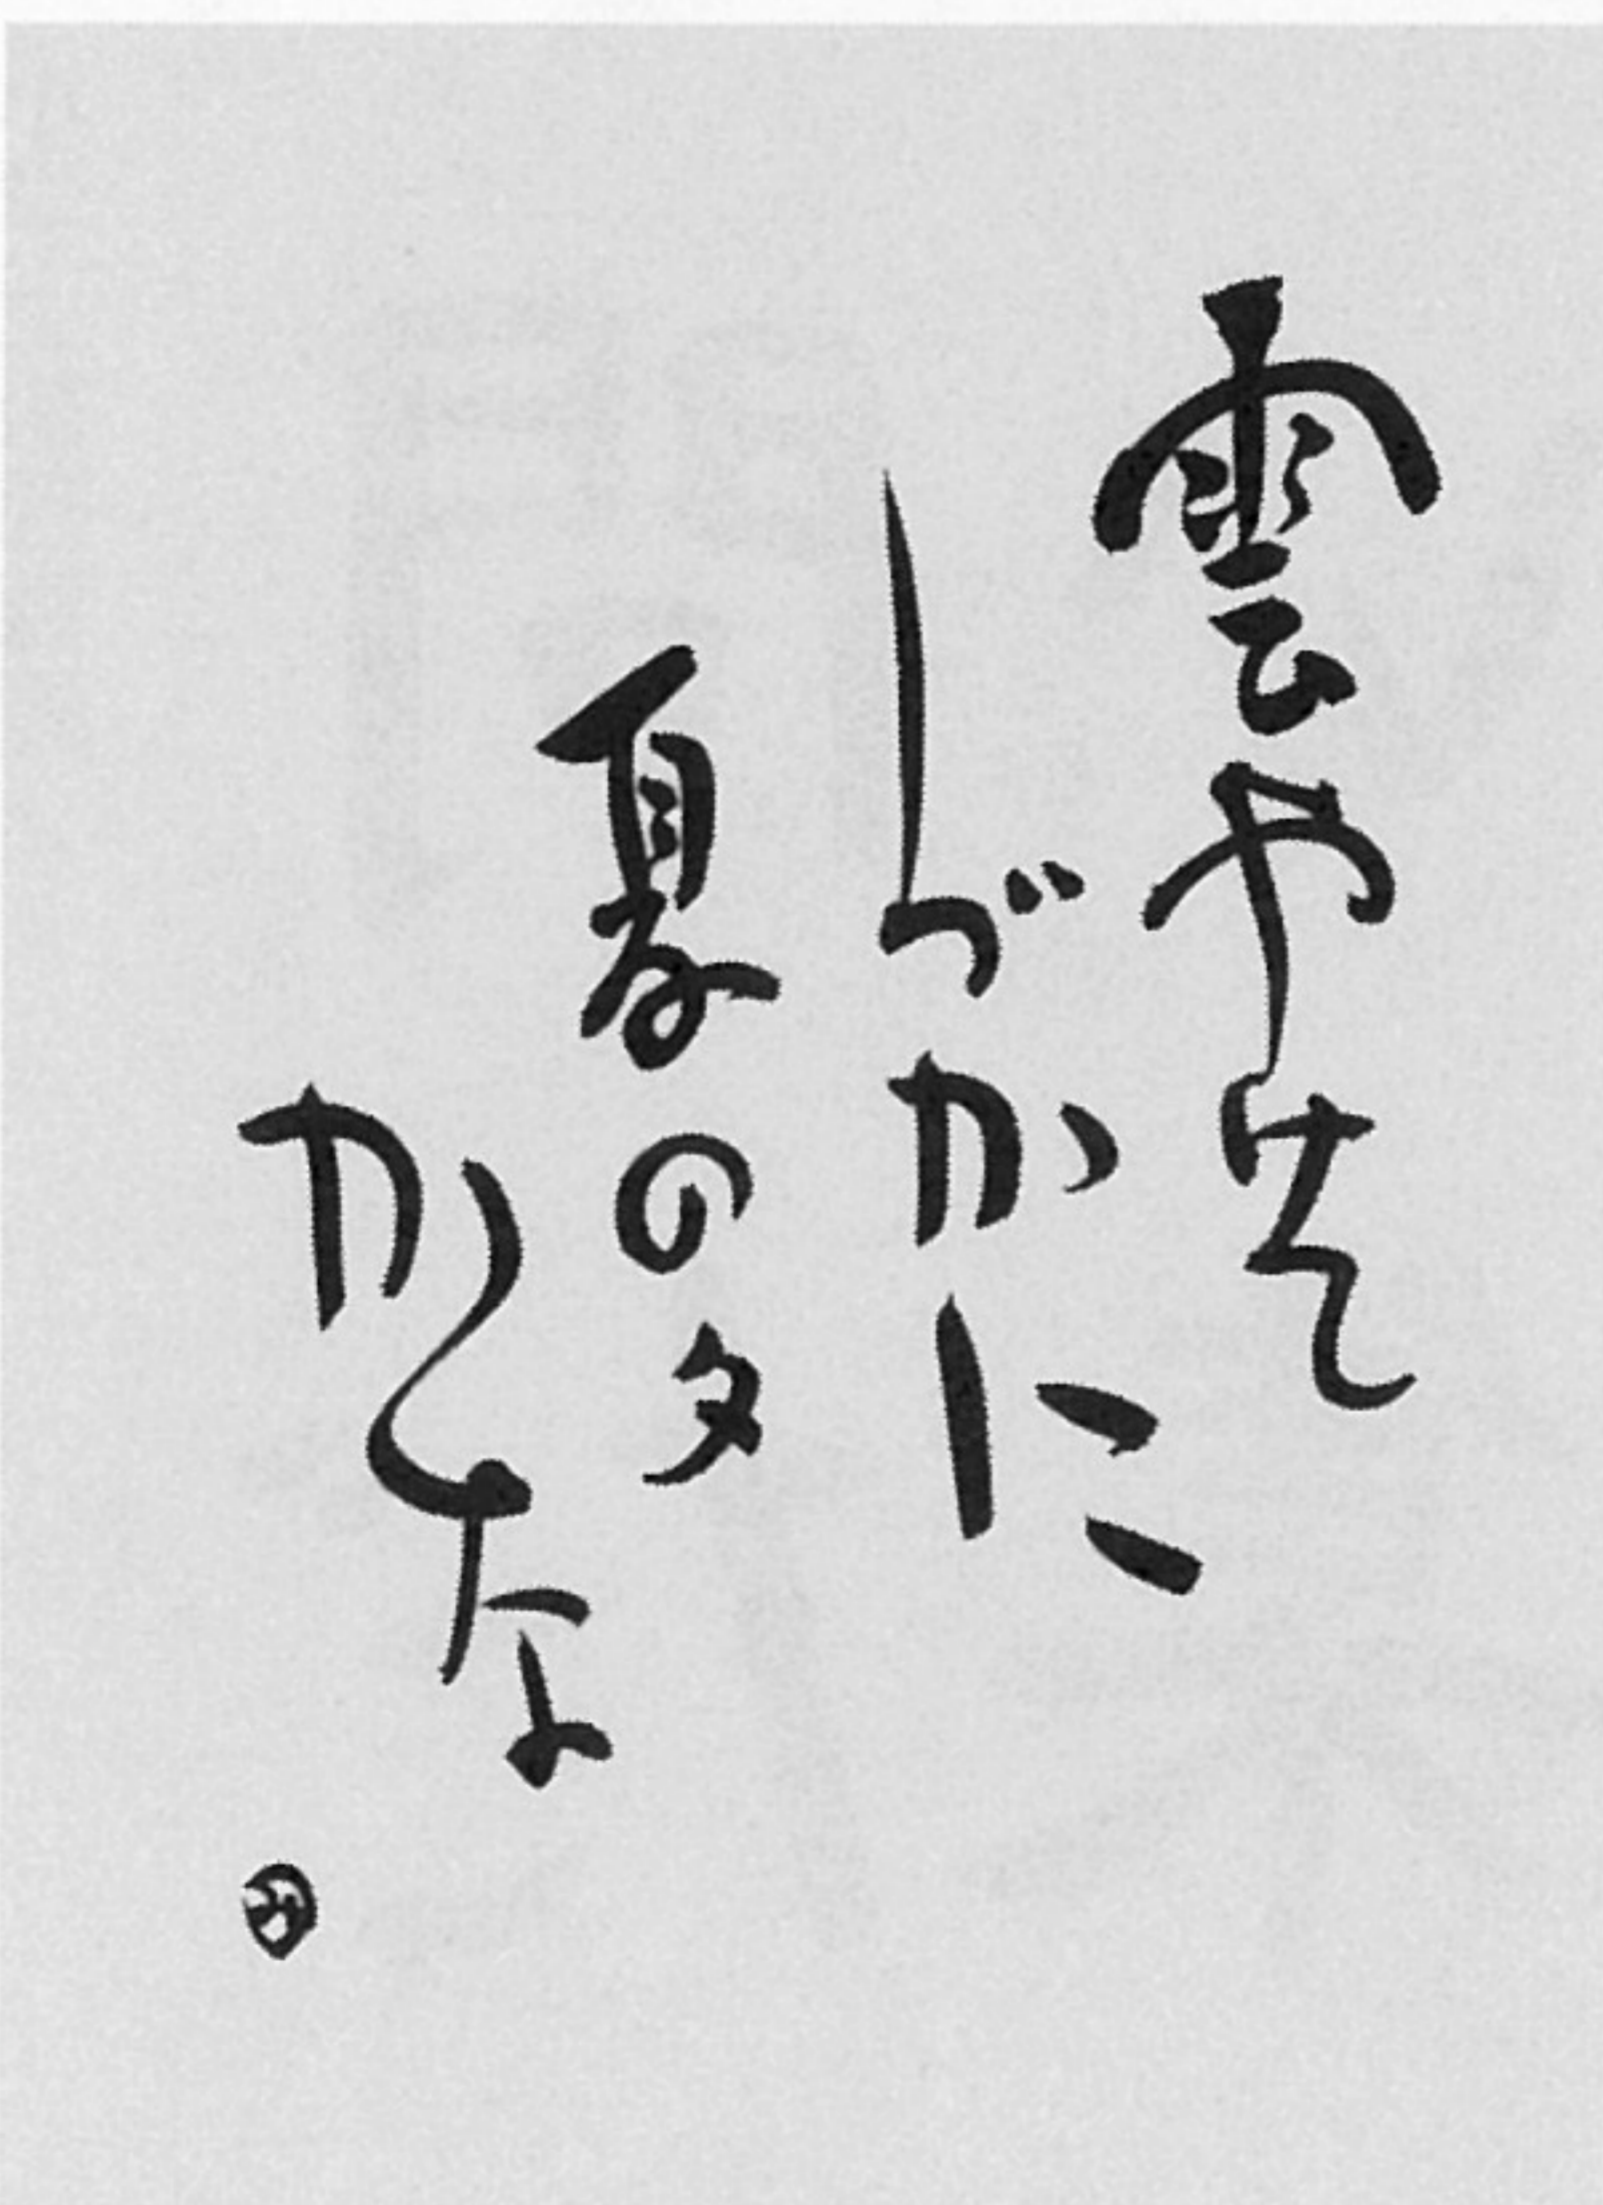 雲やけて
しづかに
夏の夕
かな